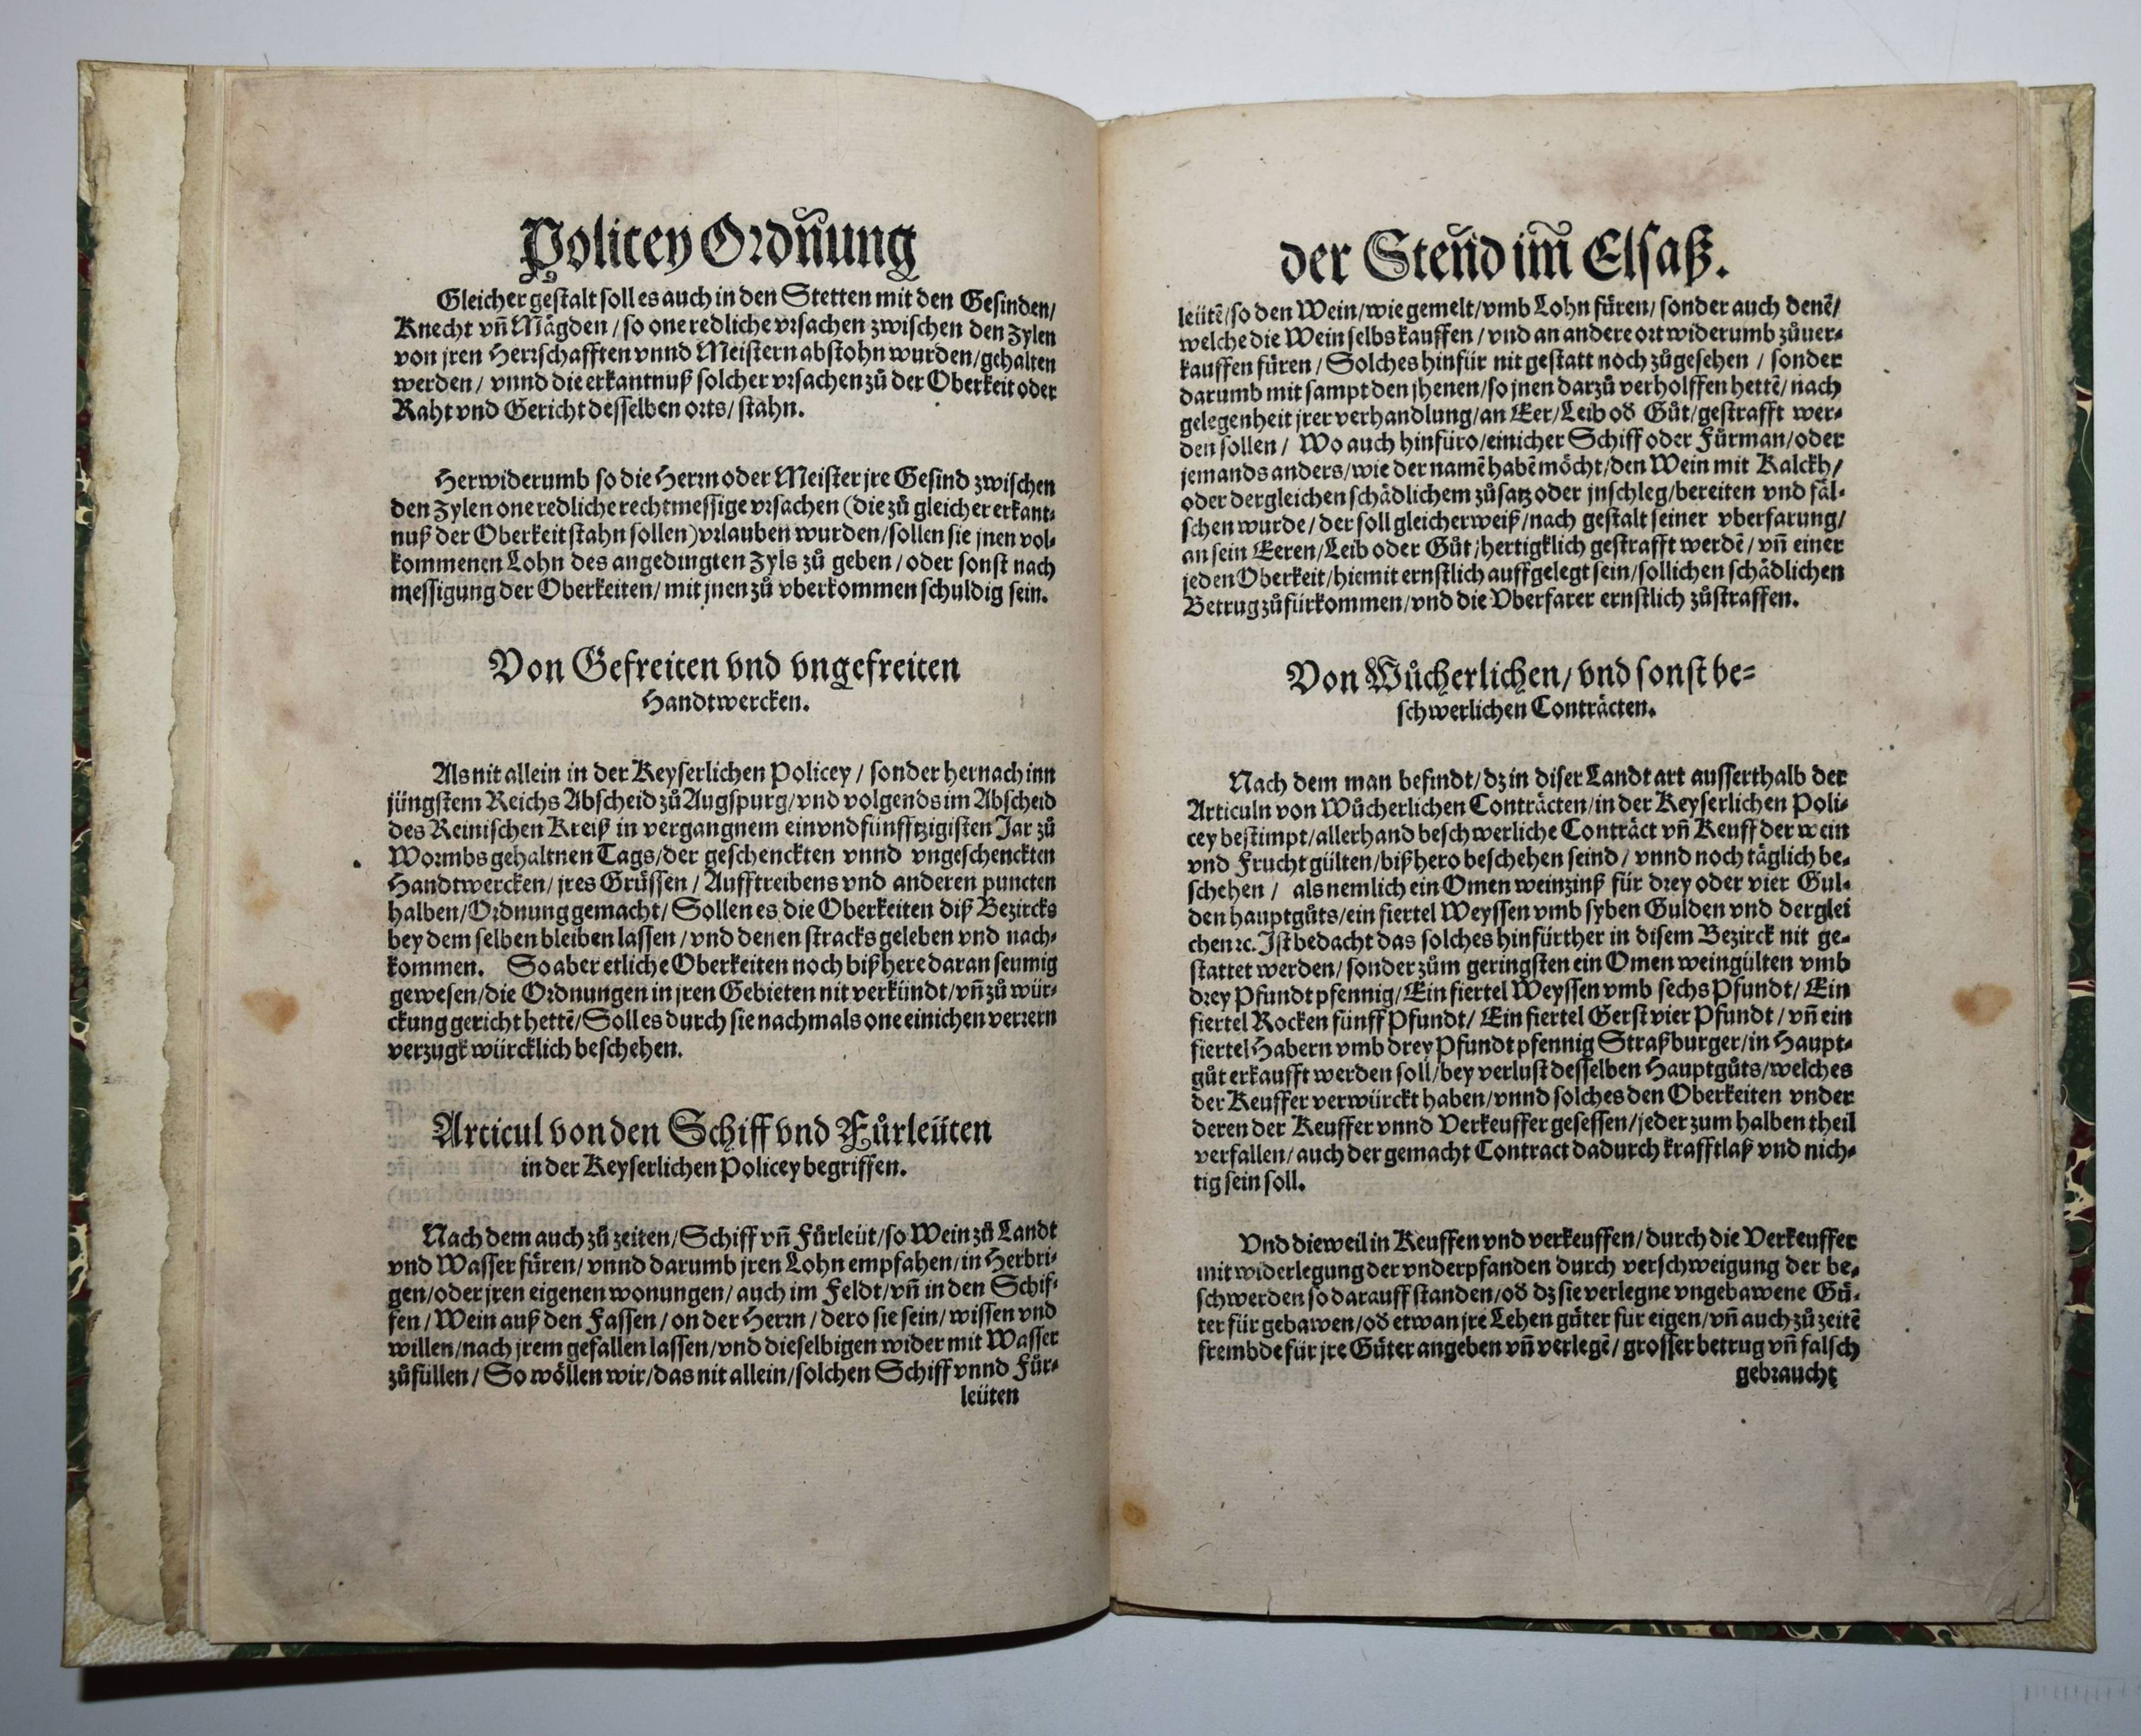 Policey Ordnũng
Gleicher gestalt soll es auch in den Stetten mit den Gesinden/
Knecht vñ Mägden / so one redliche vrsachen zwischen den Zylen
von jren Herrschafften vnnd Meistern abstohn wurden/gehalten
werden / vnnd die erkantnuß solcher vrsachen zů der Oberkeit oder
Raht vnd Gericht desselben orts / stahn.
Herwiderumb so die Herrn oder Meister jre Gesind zwischen
den Zylen one redliche rechtmessige vrsachen (die zů gleicher erkant⸗
nuß der Oberkeit stahn sollen) vrlauben wurden/sollen sie jnen vol⸗
kommenen Lohn des angedingten Zyls zů geben / oder sonst nach
messigung der Oberkeiten/ mit jnen zů vberkommen schuldig sein.
Von Gefreiten vnd vngefreiten
Handtwercken.
Als nit allein in der Keyserlichen Policey / sonder hernach inn
jüngstem Reichs Abscheid zů Augspurg/vnd volgends im Abscheid
des Reinischen Kreiß in vergangnem einvndfünfftzigisten Jar zů
Wormbs gehaltnen Tags/der geschenckten vnnd vngeschenckten
Handtwercken/ jres Grüssen / Aufftreibens vnd anderen puncten
halben/Ordnung gemacht/ Sollen es die Oberkeiten diß Bezircks
bey dem selben bleiben lassen / vnd denen stracks geleben vnd nach⸗
kommen. So aber etliche Oberkeiten noch bißhere daran seumig
gewesen/die Ordnungen in jren Gebieten nit verkündt/vñ zů wür⸗
ckung gericht hettẽ/Soll es durch sie nachmals one einichen verrern
verzugk würcklich beschehen.
Articul von den Schiff vnd Fůrleüten
in der Keyserlichen Policey begriffen.
Nach dem auch zů zeiten/Schiff vñ Fůrleüt/so Wein zů Landt
vnd Wasser füren/ vnnd darumb jren Lohn empfahen/in Herbri⸗
gen/oder jren eigenen wonungen/ auch im Feldt/vñ in den Schif⸗
fen / Wein auß den Fassen / on der Herrn / dero sie sein / wissen vnd
willen/nach jrem gefallen lassen/vnd dieselbigen wider mit Wasser
zůfüllen / So wöllen wir/das nit allein/solchen Schiff vnnd Fůr⸗
leüten
der Steñd im̃ Elsaß.
leütẽ/so den Wein/wie gemelt/vmb Lohn füren/ sonder auch denẽ/
welche die Wein selbs kauffen / vnd an andere ort widerumb zůuer⸗
kauffen füren / Solches hinfür nit gestatt noch zůgesehen / sonder
darumb mit sampt den jhenen/so jnen darzů verholffen hettẽ/ nach
gelegenheit jrer verhandlung/an Eer/Leib oď Gůt/gestrafft wer⸗
den sollen / Wo auch hinfüro/einicher Schiff oder Fůrman/oder
jemands anders/wie der namẽ habẽ möcht/den Wein mit Kalckh/
oder dergleichen schädlichem zůsatz oder jnschleg/bereiten vnd fäl⸗
schen wurde / der soll gleicherweiß/nach gestalt seiner vberfarung/
an sein Eeren/Leib oder Gůt/hertigklich gestrafft werdẽ / vñ einer
jeden Oberkeit/hiemit ernstlich auffgelegt sein/sollichen schädlichen
Betrug zů fürkommen/vnd die Vberfarer ernstlich zůstraffen.
Von Wůcherlichen/ vnd sonst be⸗
schwerlichen Conträcten.
Nach dem man befindt/dz in diser Landt art ausserthalb der
Articuln von Wůcherlichen Conträcten/in der Keyserlichen Poli⸗
cey bestimpt/allerhand beschwerliche Conträct vñ Keuff der wein
vnd Frucht gülten/bißhero beschehen seind / vnnd noch täglich be⸗
schehen / als nemlich ein Omen weinzinß für drey oder vier Gul⸗
den hauptgůts/ein fiertel Weyssen vmb syben Gulden vnd derglei
chen ꝛc. Ist bedacht das solches hinfürther in disem Bezirck nit ge⸗
stattet werden/ sonder zům geringsten ein Omen weingülten vmb
drey Pfundt pfennig/Ein fiertel Weyssen vmb sechs Pfundt/ Ein
fiertel Rocken fünff Pfundt/ Ein fiertel Gerst vier Pfundt / vñ ein
fiertel Habern vmb drey Pfundt pfennig Straßburger/in Haupt⸗
gůt erkaufft werden soll/bey verlust desselben Hauptgůts/welches
der Keuffer verwürckt haben/vnnd solches den Oberkeiten vnder
deren der Keuffer vnnd Verkeuffer gesessen/jeder zum halben theil
verfallen/ auch der gemacht Contract dadurch krafftlaß vnd nich⸗
tig sein soll.
Vnd dieweil in Keuffen vnd verkeuffen/ durch die Verkeuffer
mit widerlegung der vnderpfanden durch verschweigung der be⸗
schwerden so darauff standen/oď dz sie verlegne vngebawene Gü⸗
ter für gebawen/oď etwan jre Lehen güter für eigen/vñ auch zů zeitẽ
frembde für jre Güter angeben vñ verlegẽ/ grosser betrug vñ falsch
gebraucht